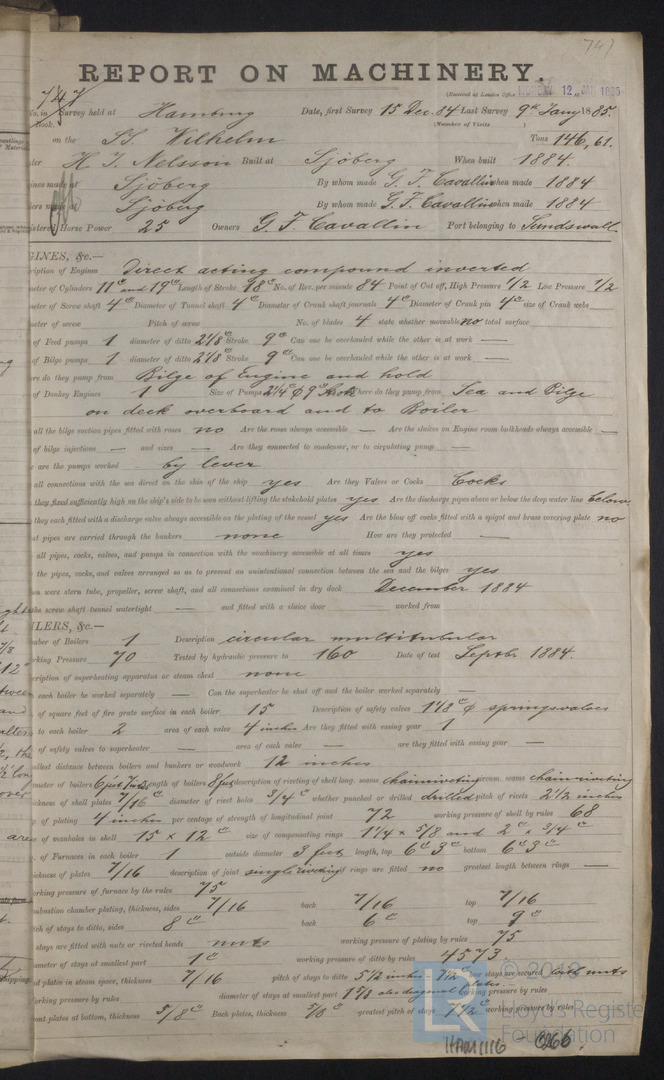 747
REPORT ON MACHINERY.
(Received at London Office MONDAY 12 JAN 1885
747
No. in Survey held at Hamburg Date, first Survey 15 Dec. 84 Last Survey 9th Jany 1885.
Book. (Number of Visits )
on the SS. Wilhelm Tons 146,61.
H. J. Nelsson Built at Sjöberg When built 1884.
made at Sjöberg By whom made G. F. Cavallin when made 1884
made at Sjöberg By whom made G. F. Cavallin when made 1884
Horse Power 25 Owners G. F. Cavallin Port belonging to Sundswall
GINES, &c.—
ription of Engines Direct acting compound inverted
meter of Cylinders 11" and 19" Length of Stroke 18" No. of Rev. per minute 84 Point of Cut off, High Pressure 1/2 Low Pressure 1/2
meter of Screw shaft 4" Diameter of Tunnel shaft 4" Diameter of Crank shaft journals 4" Diameter of Crank pin 4" size of Crank webs
meter of screw Pitch of screw No. of blades 4 state whether moveable no total surface
of Feed pumps 1 diameter of ditto 2 1/8" Stroke 9" Can one be overhauled while the other is at work —
of Bilge pumps 1 diameter of ditto 2 1/8" Stroke 9" Can one be overhauled while the other is at work —
re do they pump from Bilge of Engine and hold
of Donkey Engines 1 Size of Pumps 2 1/4" ϕ 9" Stroke here do they pump from Sea and Bilge
on deck overboard and to Boiler
all the bilge suction pipes fitted with roses no Are the roses always accessible — Are the sluices on Engine room bulkheads always accessible —
of bilge injections — and sizes — Are they connected to condenser, or to circulating pump —
are the pumps worked by lever
all connections with the sea direct on the skin of the ship yes Are they Valves or Cocks Cocks
they fixed sufficiently high on the ship's side to be seen without lifting the stokehold plates yes Are the discharge pipes above or below the deep water line below
they each fitted with a discharge valve always accessible on the plating of the vessel yes Are the blow off cocks fitted with a spigot and brass covering plate no
at pipes are carried through the bunkers none How are they protected —
all pipes, cocks, valves, and pumps in connection with the machinery accessible at all times yes
the pipes, cocks, and valves arranged so as to prevent an unintentional connection between the sea and the bilges yes
en were stern tube, propeller, screw shaft, and all connections examined in dry dock December 1884
the screw shaft tunnel watertight — and fitted with a sluice door — worked from
ILERS, &c.—
mber of Boilers 1 Description circular multitubular
rking Pressure 70 Tested by hydraulic pressure to 160 Date of test Septbr 1884.
scription of superheating apparatus or steam chest none
each boiler be worked separately — Can the superheater be shut off and the boiler worked separately —
of square feet of fire grate surface in each boiler 15 Description of safety valves 1 7/8" ϕ springvalves
to each boiler 2 area of each valve 4 inches Are they fitted with easing gear 1
of safety valves to superheater — area of each valve — are they fitted with easing gear —
allest distance between boilers and bunkers or woodwork 12 inches
meter of boilers 6 feet 7 inch Length of boilers 8 feet description of riveting of shell long. seams chain riveting circum. seams chain riveting
ickness of shell plates 7/16" diameter of rivet holes 3/4" whether punched or drilled drilled pitch of rivets 2 1/2 inches
of plating 4 inches per centage of strength of longitudinal joint 72 working pressure of shell by rules 68
of manholes in shell 15 × 12" size of compensating rings 1 1/4 × 5/8 and 2" × 3/4"
of Furnaces in each boiler 1 outside diameter 3 feet length, top 6' 3" bottom 6' 3"
ickness of plates 7/16 description of joint single riveting if rings are fitted no greatest length between rings —
orking pressure of furnace by the rules 75
mbustion chamber plating, thickness, sides 7/16 back 7/16 top 7/16
tch of stays to ditto, sides 8" back 6" top 9"
stays are fitted with nuts or riveted heads nuts working pressure of plating by rules 75
ameter of stays at smallest part 1" working pressure of ditto by rules 4573
d plates in steam space, thickness 7/16 pitch of stays to ditto 5 1/2 inches — 7 1/2" how stays are secured with nuts
orking pressure by rules diameter of stays at smallest part 1 5/8 also diagonal plates. working pressure by rules
ront plates at bottom, thickness 5/8" Back plates, thickness 5/8" greatest pitch of stays 7 1/2" working pressure by rules
© 2019
Lloyd's Register
Foundation
HAM1116 0266